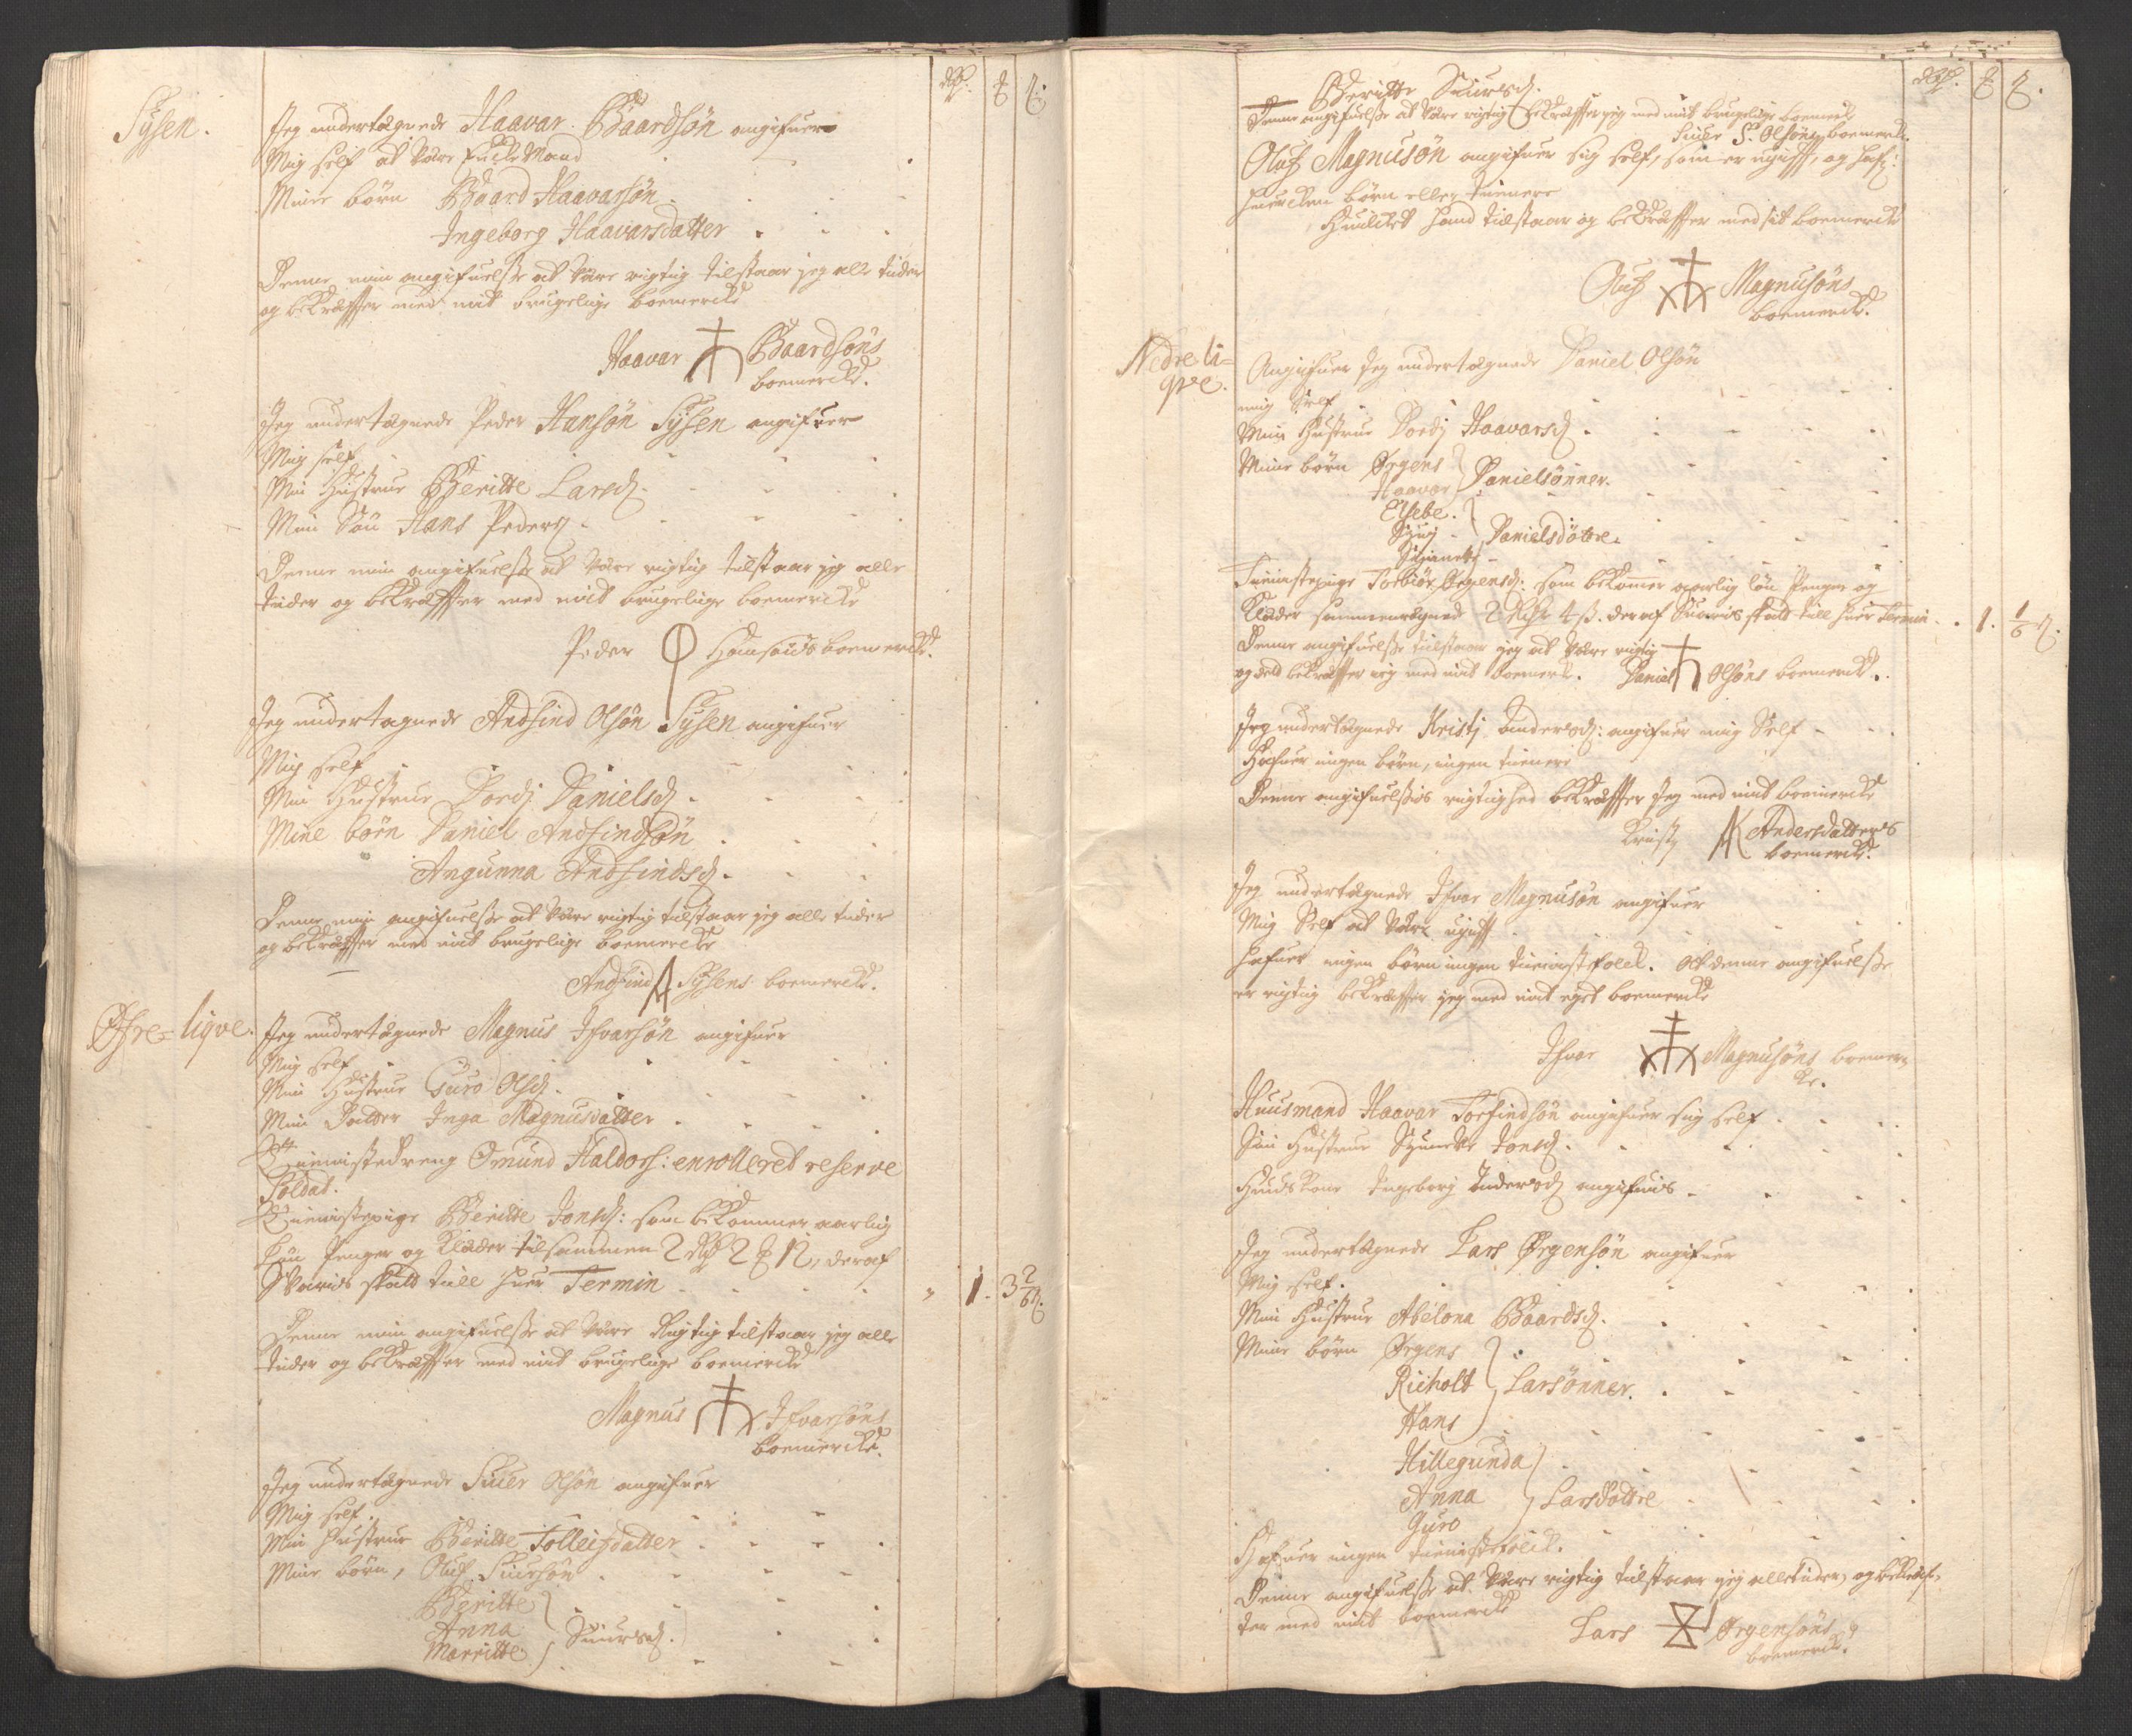 Sÿsen.
Jeg undertægnede Haavar Baardsøn angifuer
Mig self at være Encke Mand
Mine børn Baard Haavarsøn
Ingeborg Haavarsdatter
Denne min angifuelsse at være rigtig tilstaar jeg alle tider
og bekræffter med mit brugelige boemercke
Haavar Baardsøns
boemercke.
Jeg undertægnede Peder Hansøn Sÿsen angifuer
Mig self
Min Hustrue Beritte Larsd.
Min Søn Hans Peders.
Denne min angifuelsse at være rigtig tilstaar jeg alle
tider og bekræffter med mit brugelige boemercke
Peder Hansøns boemercke.
Jeg undertægnede Andfind Olsøn Sÿsen angifuer
Mig self
Min Hustrue Dordj Danielsd.
Mine børn Daniel Andfindsøn
Angunna Andfindsd.
Denne min angifuelsse at være rigtig tilstaar jeg alle tider
og bekræffter med mit brugelige boemercke
Andfind Sÿsens boemercke.
Øfre=liqve.
Jeg undertægnede Magnus Ifvarsøn angifuer
Mig self
Min Hustrue Guro Olsd.
Min Datter Inga Magnusdatter
Tienistedreng Omund Haldors: enrolleret reserve
Soldat.
Tienistepige Beritte Jonsd: som bekommer aarlig
Løn Penger og Klæder tilsammen 2 , deraf
Svaris skatt till huer Termin 1. 3 2/6
Denne min angifuelsse at være Rigtig tilstaar jeg alle
tider og bekræffter med mit brugelige boemercke
Magnus Ifvarsøns
boemercke.
Jeg undertægnede Siuer Olsøn angifuer
Mig self.
Min Hustrue Beritte Tolleifsdatter
Mine børn, Oluf Siursøn
Beritte
Anna Siursd.
Marritte
Beritte Siursd.
Denne angifuelsse at være rigtig bekræffter jeg med mit brugelige boemerke
Siuer S. Olsøns boemercke.
Oluf Magnusøn angifuer sig self, som er ugifft, og hafr:
huercken børn eller tienere
Huilcket hand tilstaar og bekræffter med sit boemercke
Oluf Magnusøns
boemercke.
Nedre li=
qve.
Angifuer Jeg undertægnede Daniel Olsøn
mig Self
Min Hustrue Dordj Haavarsd.
Mine børn Ørgens
Haavar Danielsønner.
Elsebe.
Danielsdøttre.
Tienistepige Torbiør Ørgensd: som bekommer aarlig løn Penger og
Klæder sammenregnet 2 Rdr 4 ß. deraf Suaris skatt till huer Termin 1. 1/6
Denne angifuelsse tilstaar jeg at være rigtig
og bekræffter jeg med mit boemerk. Daniel Olsøns boemercke.
Jeg undertægnede Kristj Andersd: angifuer mig Self
Hafuer ingen børn, ingen tienere
Denne angifuelsses rigtighed bekræffter Jeg med mit boemercke
Kristj Andersdatters
boemercke.
Jeg undertægnede Ifvar Magnusøn angifuer
Mig Self at være ugifft
hafuer ingen børn ingen tienistefolck. At denne angifuelsse
er rigtig bekræffter jeg med mit eget boemercke
Ifvar Magnusøns boemer=
ke.
Huusmand Haavar Torfindsøn angifuer sig self
Sin Hustrue Sÿnneve Jonsd.
Huuskone Ingeborg Andersd angifuis
Jeg undertægnede Lars Ørgensøn angifuer
Mig self.
Min Hustrue Abelona Baardsd.
Mine børn Ørgens
Richolt Larsønner.
Hans
Hillegunda
Anna Larsdøttre
Guro
Hafuer ingen tienistefolck.
Denne angifuelsse at være rigtig tilstaar jeg alletider, og bekræf=
ter med mit boemercke
Lars Ørgensøns
boemercke.